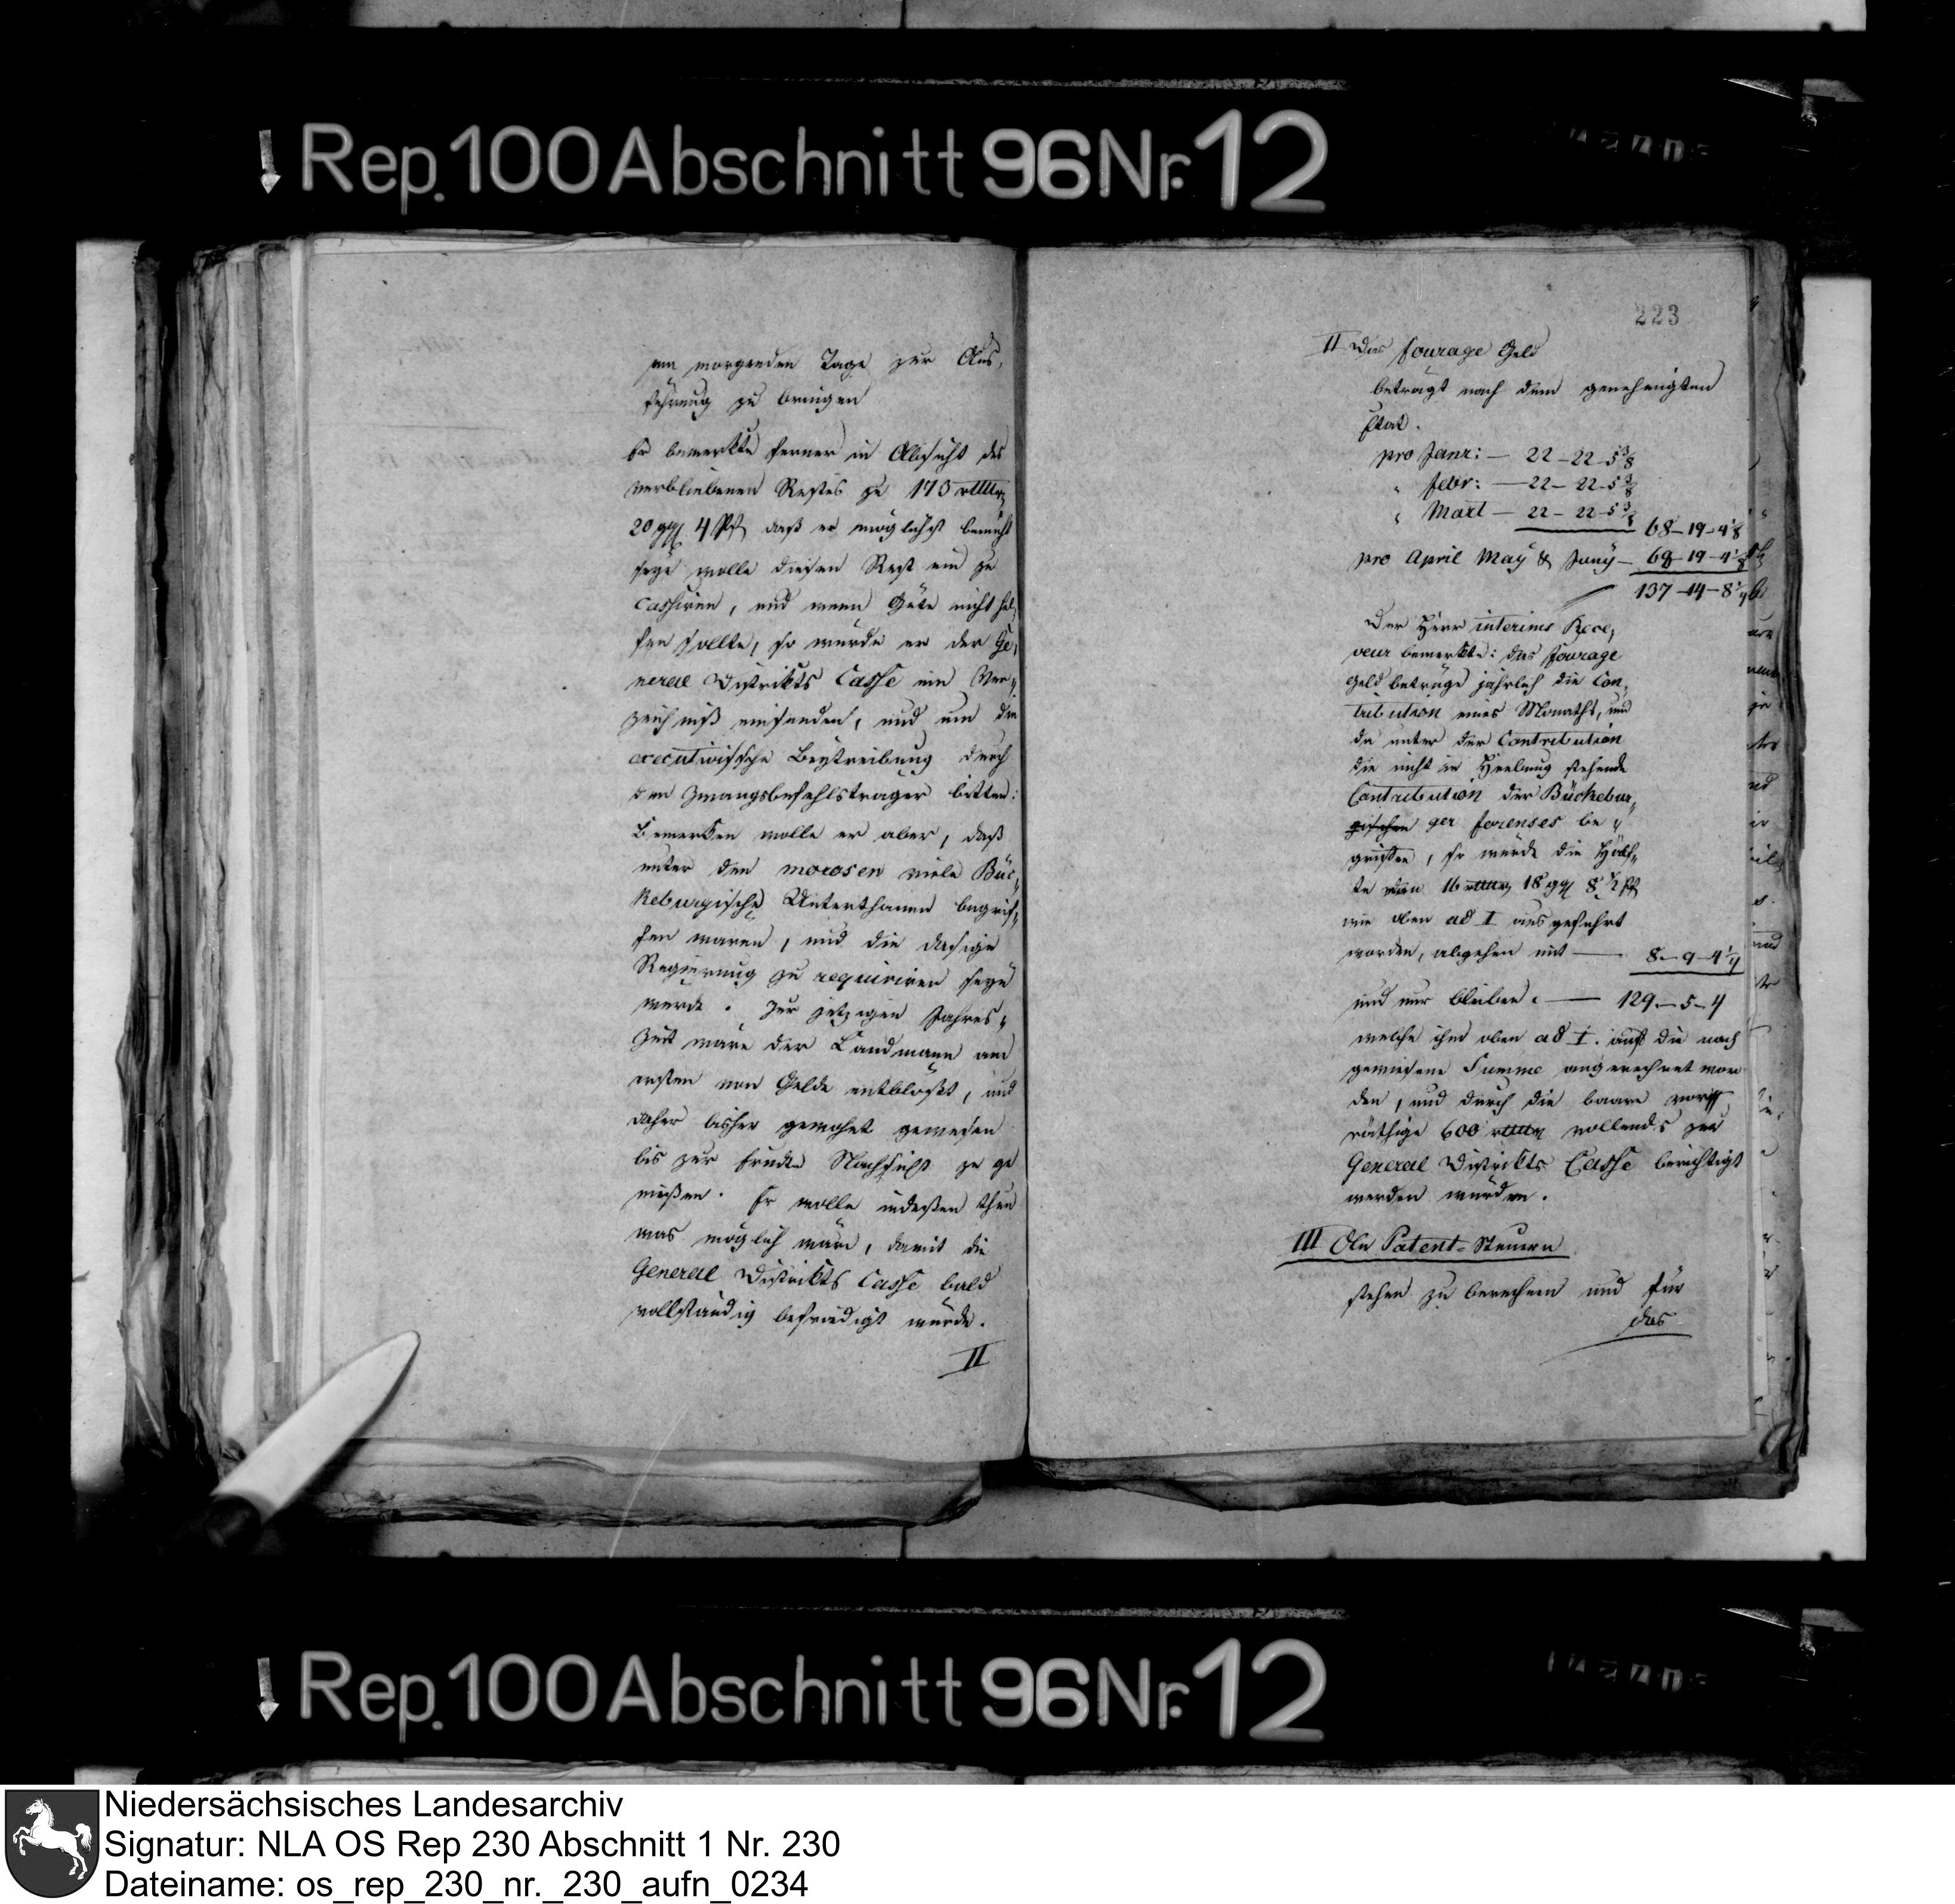 Rep. 100 Abschnitt 96 Nr. 12
am morgenden Tage zur Aus,
führung zu bringen
Er bemerkte ferner in Absicht des
verbliebenen Restes zu 173 rthlr
20 ggr 4 Pf, daß er möglichst bemüht
seyn wolle diesen Rest ein zu
cassiren, und wenn Güte nicht hel,
fen sollte, so würde er der Ge,
neral Distrikts Casse ein Ver,,
zeichniß einsenden, und um die
executivische Beytreibung durch
den Zwangsbefehlsträger bitten:
Bemerken wolle er aber, daß
unter den morosen viele Büc,,
keburgische Unterthanen begrif,,
fen wären, und die dasige
Regierung zu requiriren seyn
werde. Zur jetzigen Jahres,,
Zeit wäre der Landmann am
ersten von Gelde entblößt, und
daher bisher gewohnt gewesen
bis zur Erndte Nachsicht zu ge
nießen. Er wolle indeßen thun
was möglich wäre, damit die
General Distrikts Casse bald
vollständig befriedigt würde.
II
223
II Das fourage Geld
beträgt nach dem genehmigten
Etat.
pro Janr: — 22 – 22 – 5 3/8
" Febr: — 22 – 22 – 5 3/8
" Mart — 22 – 22 – 5 3/8
68 – 19 – 4 1/8
pro April May & Juny – 68 – 19 – 4 1/8
137 – 14 – 8 1/4
Der Herr interims Rece,
veur bemerkte: das fourage
Geld betrüge jährlich die Con,
tribution eines Monaths, und
da unter der Contribution
die nicht in Heebung stehende
Contribution der Bückebur,
gischen ger forenses be,,
griffen, so würde die Hälf,,
te von 16 rthlr 18 ggr 8 1/2 Pf
wie oben ad I ausgeführt
worden, abgehen mit — 8 – 9 – 4 1/4
und nur bleiben. — 129 – 5 – 4
welche ihm oben ad I. auf die nach
gewiesene Summe angerechnet wor
den, und durch die baare vor,,
räthige 600 rthlr vollends zur
General Distrikts Casse berichtigt
werden würden.
III An Patent-Steuern
stehen zu berechnen und für
das
Rep. 100 Abschnitt 96 Nr. 12
Niedersächsisches Landesarchiv
Signatur: NLA OS Rep 230 Abschnitt 1 Nr. 230
Dateiname: os_rep_230_nr._230_aufn_0234